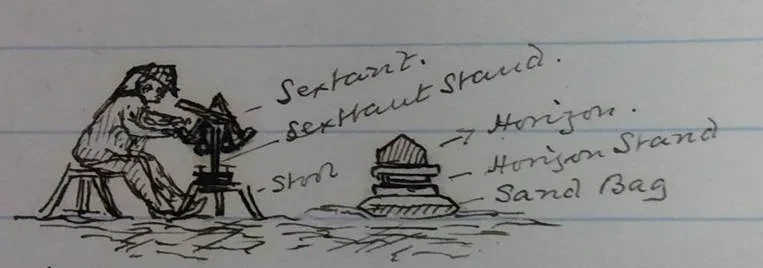 Sextant.
Sextant Stand.
Stool
Horizon.
Horizon Stand
Sand Bag